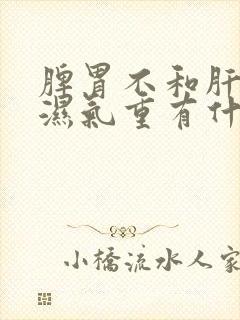 脾胃不和肝
濕氣重有什
小橋流水人家